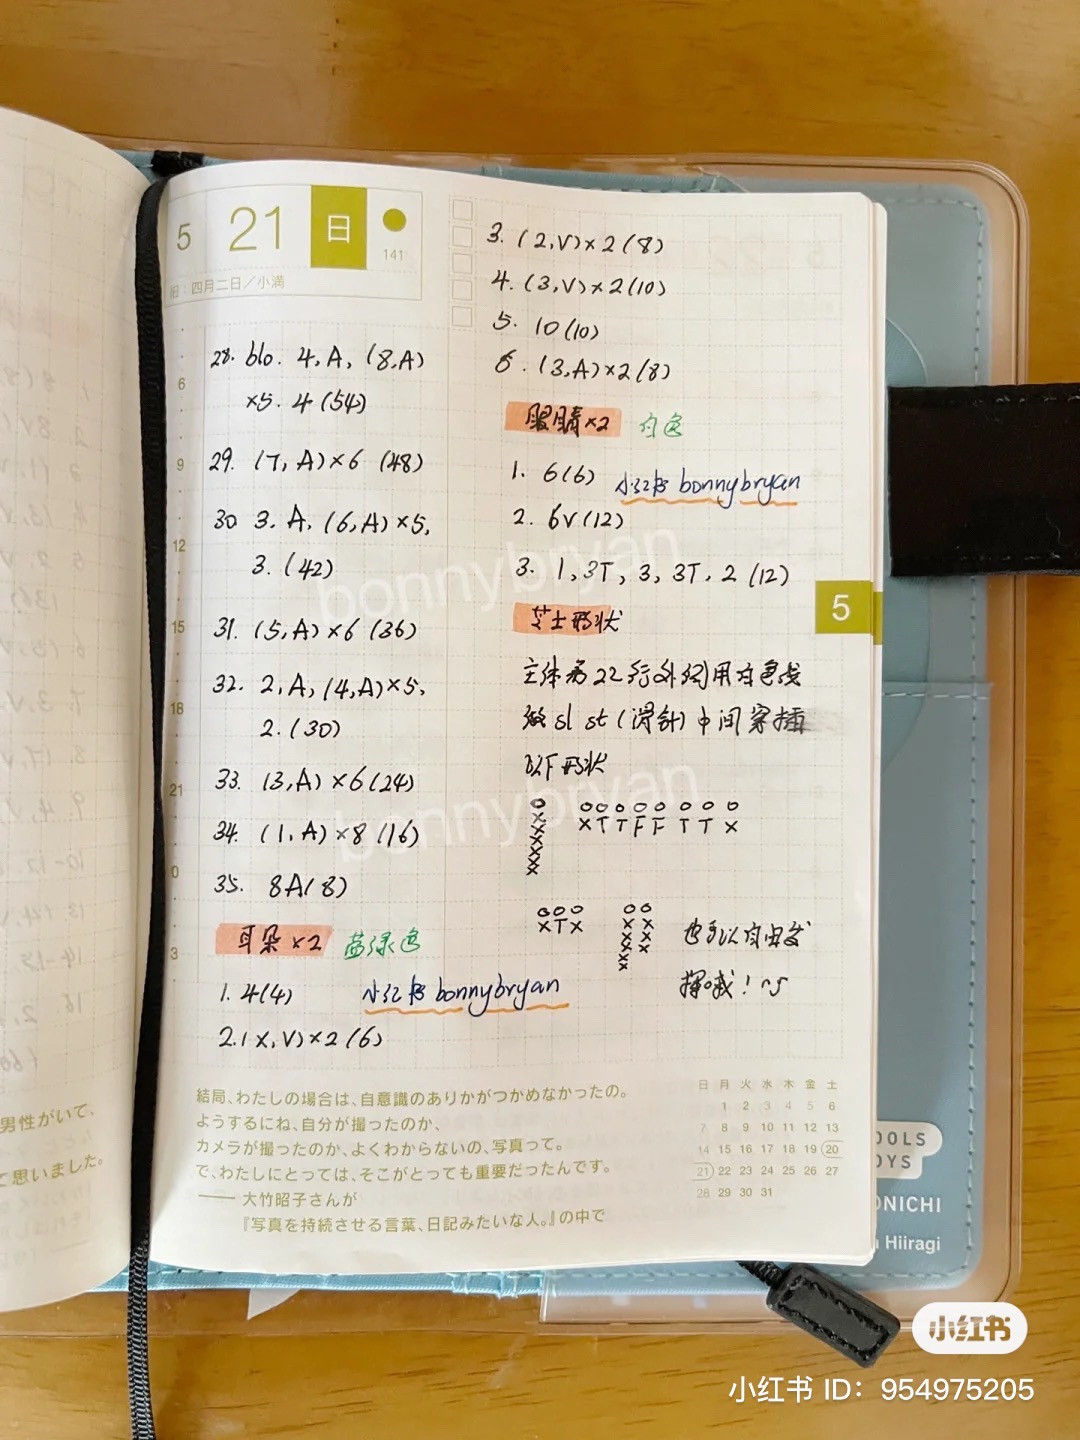 5 21 日
141
旧:四月二日／小満
6
9
12
15
18
21
0
3
28. blo. 4, A, (8,A)
×5. 4 (54)
29. (7, A)×6 (48)
30 3. A, (6,A)×5,
3. (42)
31. (5,A)×6 (36)
32. 2,A, (4,A)×5,
2. (30)
33. (3,A)×6(24)
34. (1,A)×8 (16)
35. 8A(8)
耳朵×2 蓝绿色
1. 4(4) 小红书 bonnybryan
2. (X,V)×2(6)
3. (2,V)×2(8)
4. (3,V)×2(10)
5. 10(10)
6. (3,A)×2(8)
眼睛×2 白色
1. 6(6) 小红书 bonnybryan
2. 6V(12)
3. 1,3T,3,3T,2 (12)
芝士形状
主体第22行外侧用白色线
做sl st(滑针)中间穿插
以下形状
o o o o o o o o o
x X T T F F T T X
x
x
x
x
x
o o o o o
X T X x x
x x
x x
x
x
也可以自由发
挥哦!~
bonnybryan
bonnybryan
結局、わたしの場合は、自意識のありかがつかめなかったの。
ようするにね、自分が撮ったのか、
カメラが撮ったのか、よくわからないの、写真って。
で、わたしにとっては、そこがとっても重要だったんです。
—— 大竹昭子さんが
『写真を持続させる言葉、日記みたいな人。』の中で
日 月 火 水 木 金 土
1 2 3 4 5 6
7 8 9 10 11 12 13
14 15 16 17 18 19 20
21 22 23 24 25 26 27
28 29 30 31
5
男性がいて、
と思いました。
OOLS
OYS
ONICHI
Hiiragi
小红书
小红书 ID：954975205